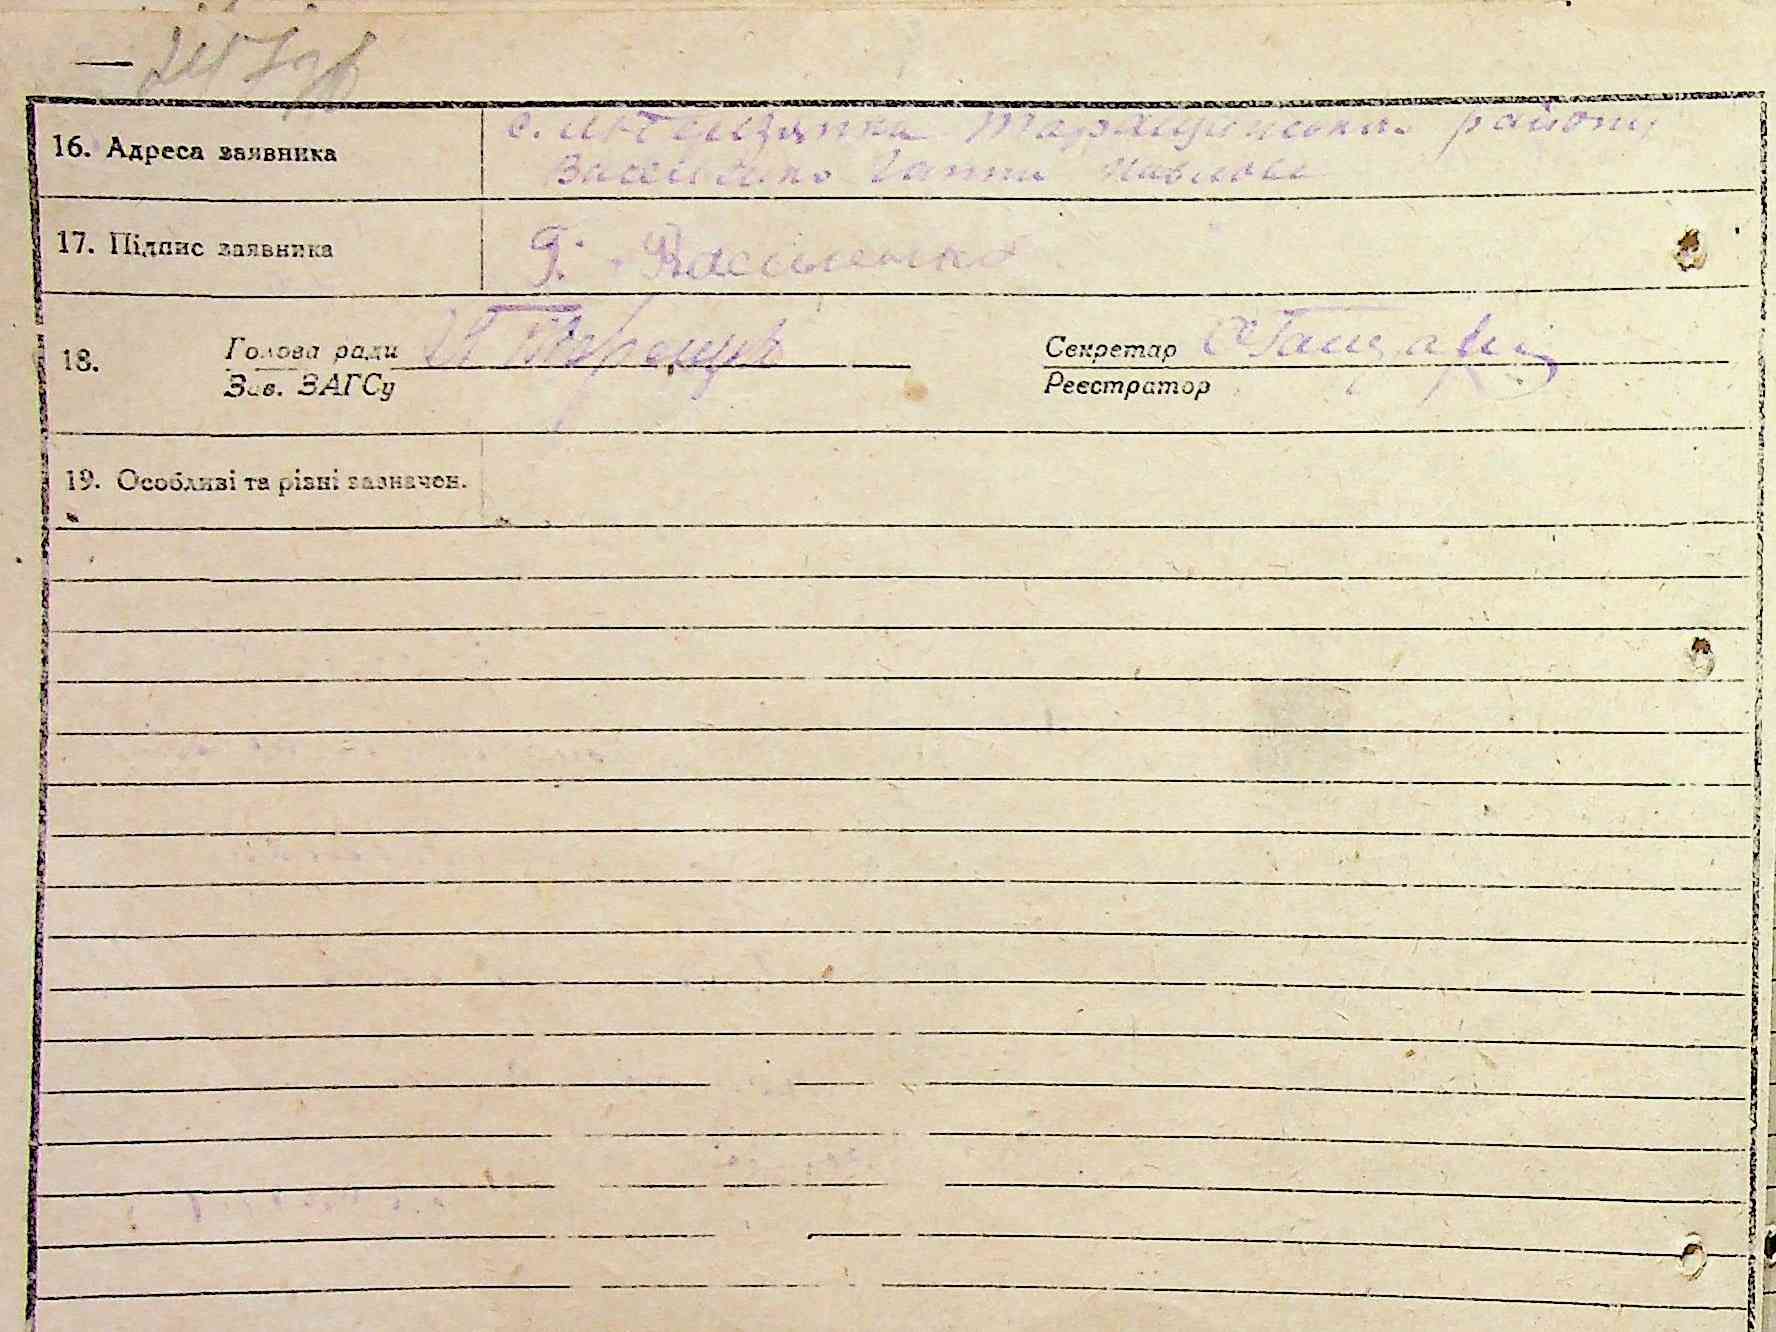 16. Адреса заявника
с. Лютенщина Таращинського району
Василенко Ганна Павловна
17. Підпис заявника
Г. Василенко
18. Голова ради Секретар
Зав. ЗАГСу Реєстратор
19. Особливі та різні зазначен.